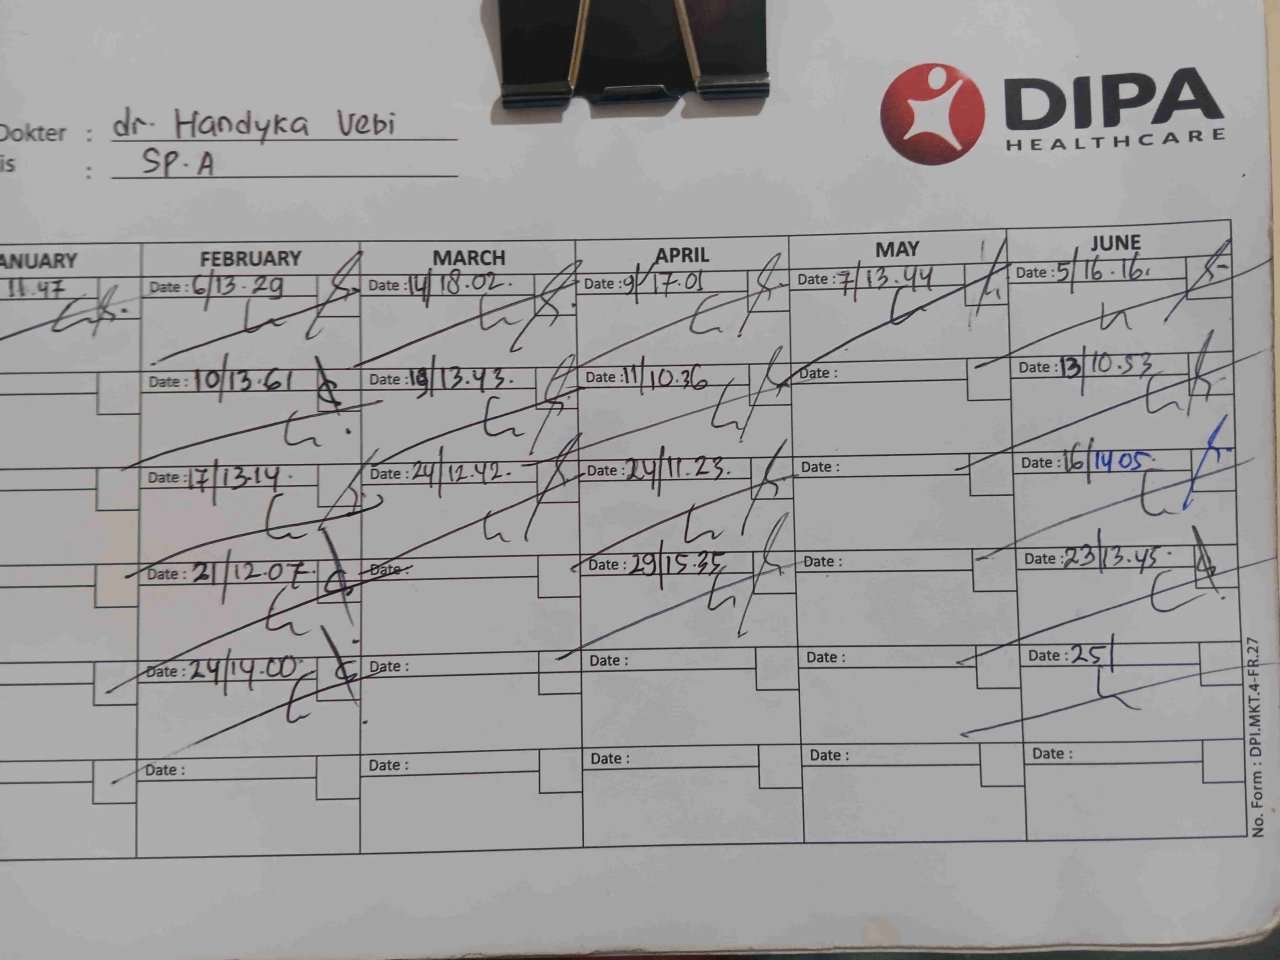 DIPA
HEALTHCARE
Dokter : dr. Handyka Vebi
is : SP.A
ANUARY FEBRUARY MARCH APRIL MAY JUNE
11.47 Date : 6/13.29 Date : 14/18.02. Date : 9/17.01 Date : 7/13.44 Date : 5/16.16.
Date : 10/13.61 Date : 18/13.43. Date : 11/10.36 Date : Date : 13/10.53
Date : 17/13.14. Date : 24/12.42. Date : 24/11.23. Date : Date : 16/14.05.
Date : 21/12.07. Date : Date : 29/15.35 Date : Date : 23/13.45.
Date : 24/14.00. Date : Date : Date : Date : 25/
Date : Date : Date : Date : Date :
No. Form : DPI.MKT.4-FR.27